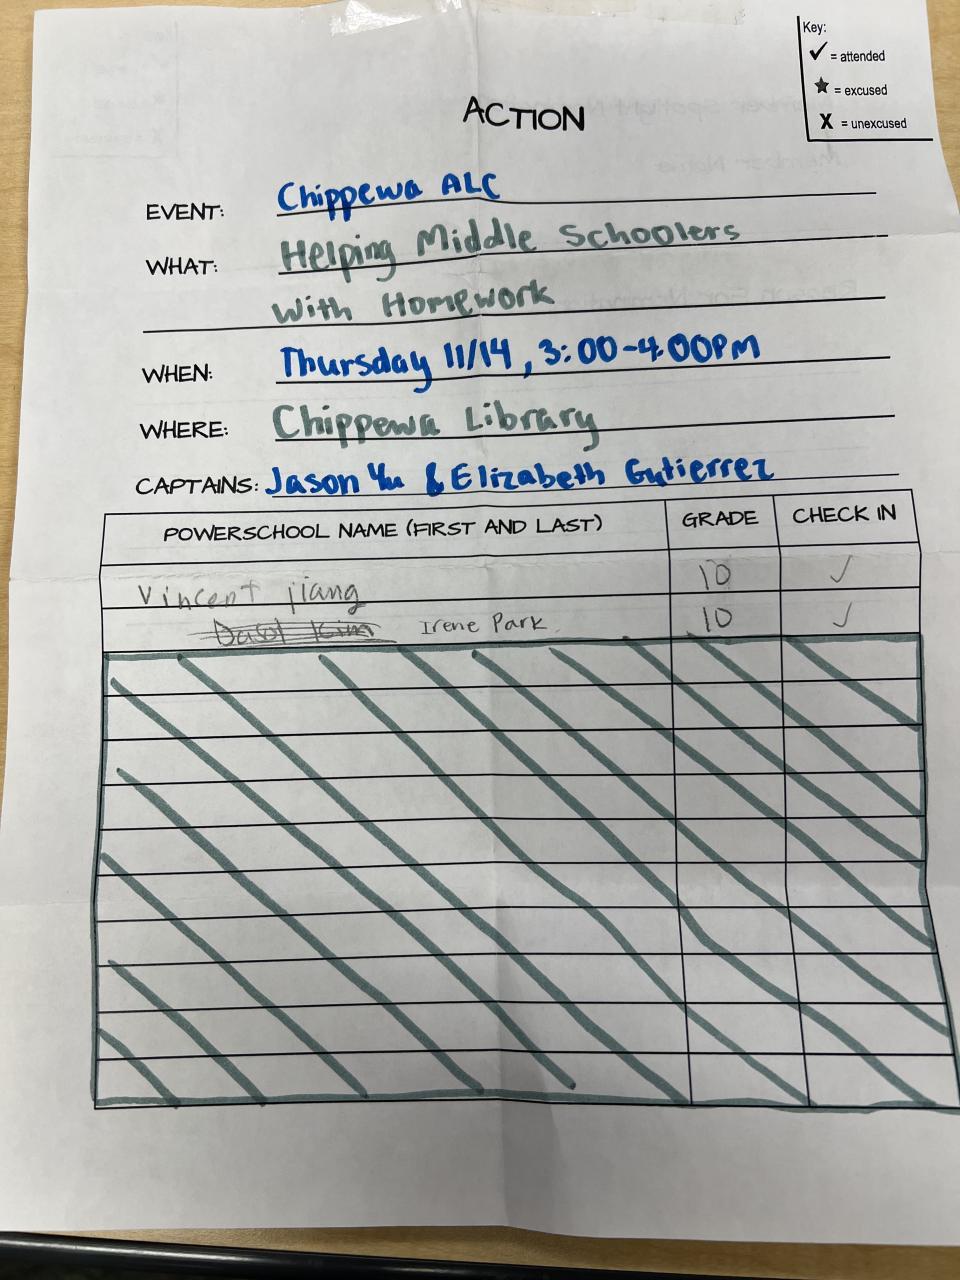 Key:
✓ = attended
★ = excused
X = unexcused
ACTION
EVENT: Chippewa ALC
WHAT: Helping Middle Schoolers
With Homework
WHEN: Thursday 11/14, 3:00-4:00PM
WHERE: Chippewa Library
CAPTAINS: Jason Yu & Elizabeth Gutierrez
POWERSCHOOL NAME (FIRST AND LAST) GRADE CHECK IN
Vincent jiang 10 ✓
Irene Park 10 ✓